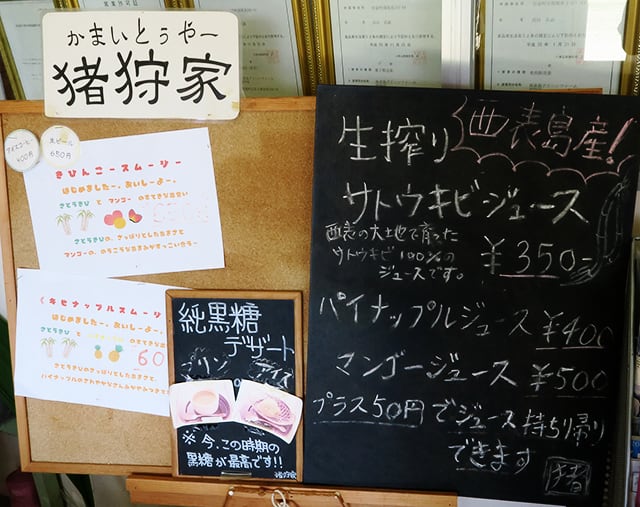 かまいとぅやー
猪狩家
アイスコーヒー
400円
生ビール
650円
きびんこースムージー
はじめましたー。おいしーよー。
さとうきび と マンゴー のすてきな出会い
さとうきびの、さっぱりとした甘さと
マンゴーの、のうこうな甘さがすっごいカラー
《キビナップルスムージー
はじめましたー。おいしーよー。
さとうきび と
のすてきな出
60
さとうきびのさっぱりとした甘さと、
パイナップルの
純黒糖
デザート
プリン
アイス
※今、この時期の
黒糖が最高です!!
猪狩家
生搾り 西表島産!
サトウキビジュース
西表の大地で育った
サトウキビ100%の
ジュースです。
¥350-
パイナップルジュース ¥400
マンゴージュース ¥500
プラス50円でジュース持ち帰り
できます